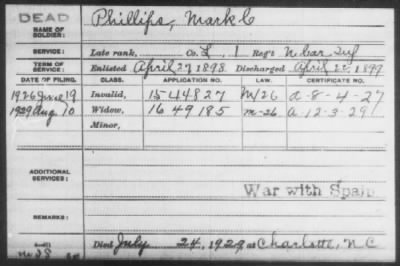 DEAD
NAME OF SOLDIER: Phillips, Mark C
SERVICE: Late rank, Co. L 1 Reg't N Car Inf
TERM OF SERVICE: Enlisted April 27 1898 Discharged April 22, 1899
DATE OF FILING. CLASS. APPLICATION NO. LAW. CERTIFICATE NO.
1926 June 19 Invalid, 1544827 M/26 a-8-4-27
1929 Aug 10 Widow, 1649185 m-26 a 12-3-29
Minor,
ADDITIONAL SERVICES:
War with Spain
REMARKS:
Died July 24, 1929, at Charlotte, N C